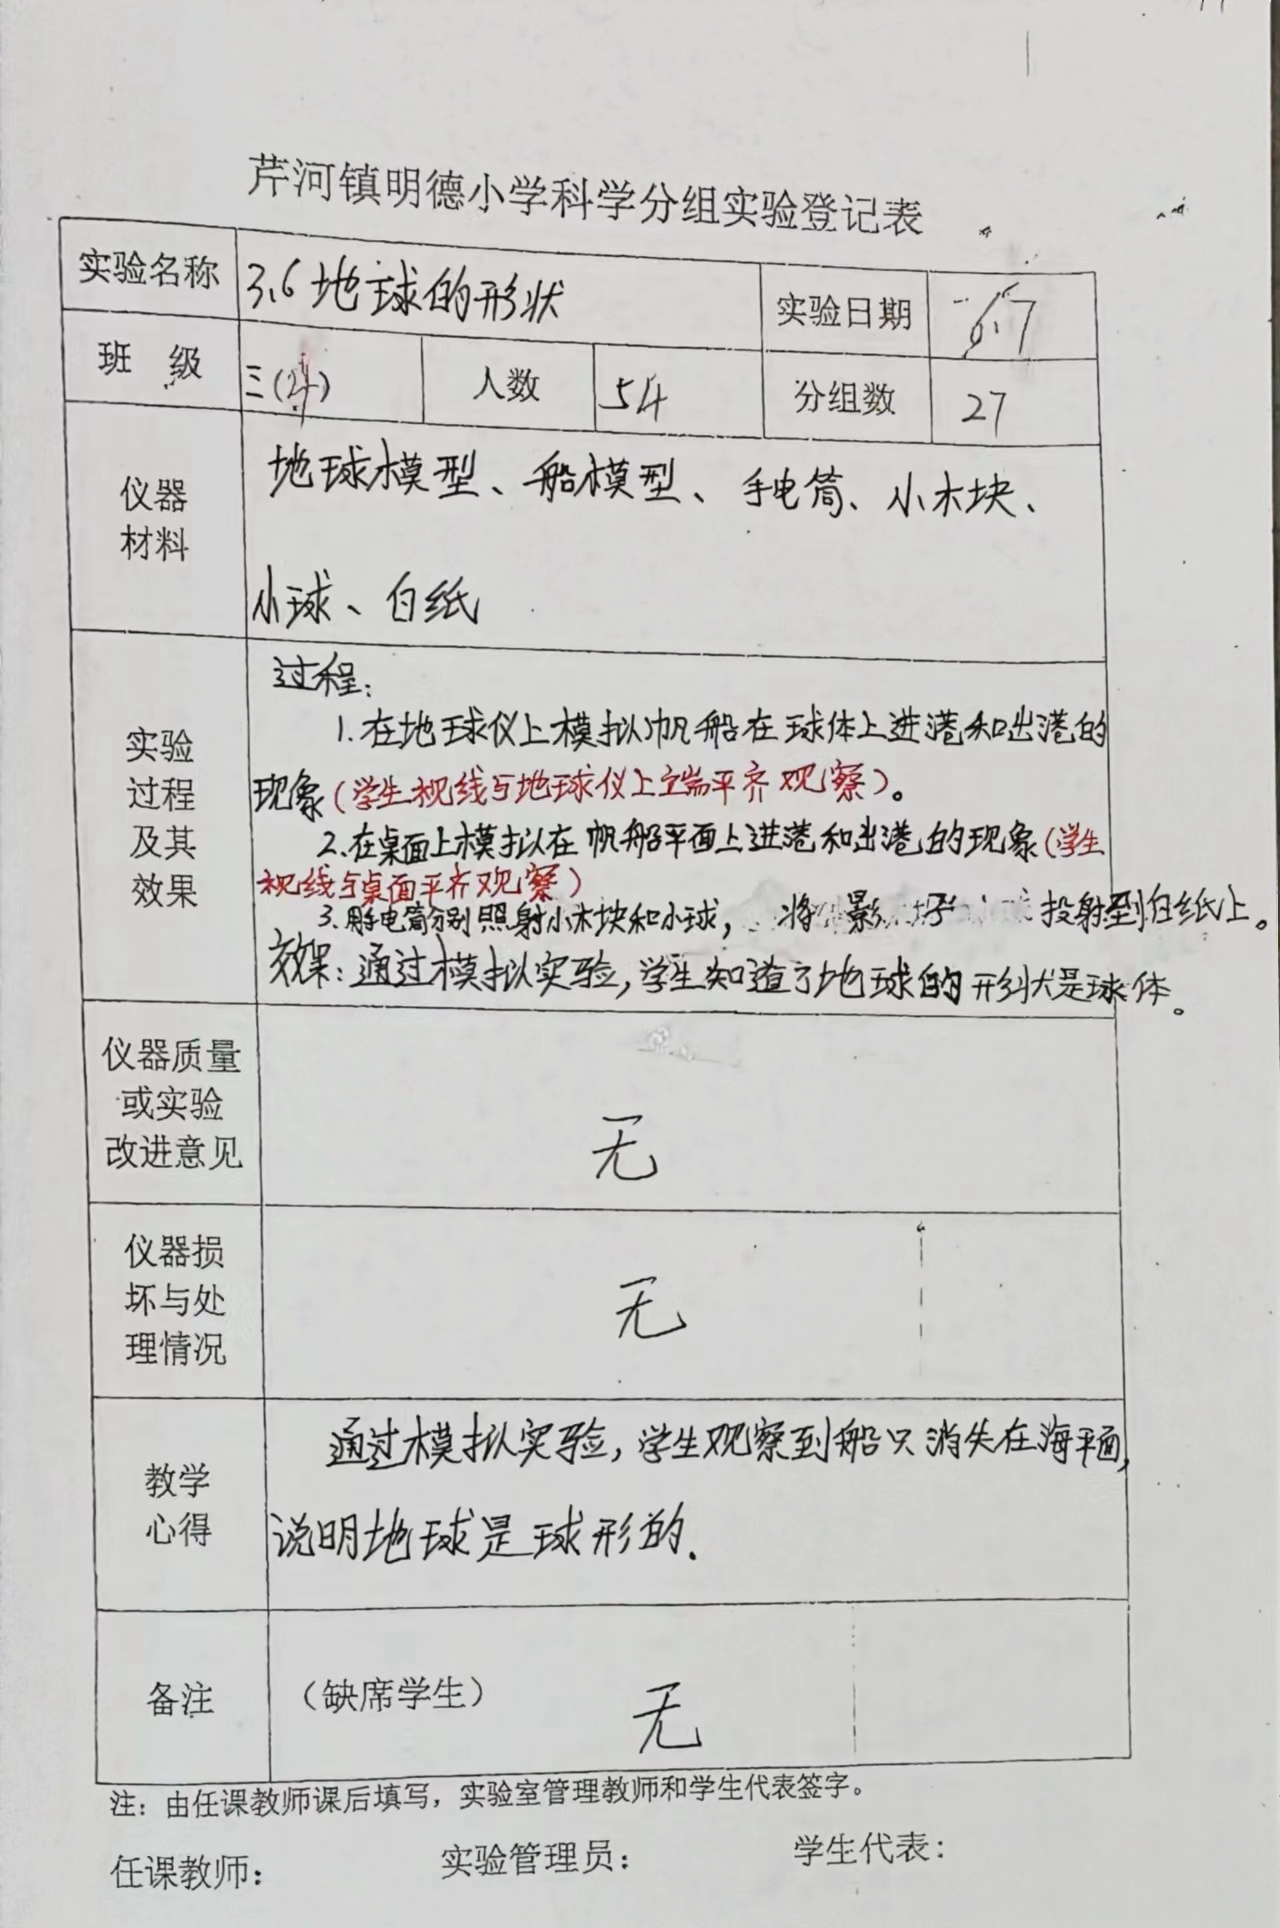 芹河镇明德小学科学分组实验登记表
实验名称 3.6 地球的形状 实验日期 6.7
班 级 三( ) 人数 54 分组数 27
仪器
材料
地球模型、船模型、手电筒、小木块、
小球、白纸
实验
过程
及其
效果
过程:
1.在地球仪上模拟帆船在球体上进港和出港的
现象(学生视线与地球仪上端平齐观察)。
2.在桌面上模拟在帆船平面上进港和出港的现象(学生
视线与桌面平齐观察)
3.用手电筒分别照射小木块和小球, 将 影 投射到白纸上。
效果:通过模拟实验,学生知道了地球的形状是球体。
仪器质量
或实验
改进意见
无
仪器损
坏与处
理情况
无
教学
心得
通过模拟实验,学生观察到船只消失在海平面,
说明地球是球形的.
备注 (缺席学生) 无
注:由任课教师课后填写,实验室管理教师和学生代表签字。
任课教师: 实验管理员: 学生代表: